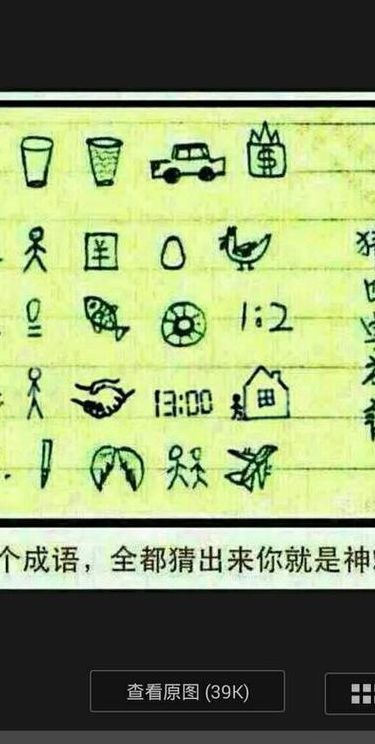 $
1:2
13:00
个成语，全都猜出来你就是神
查看原图 (39K)